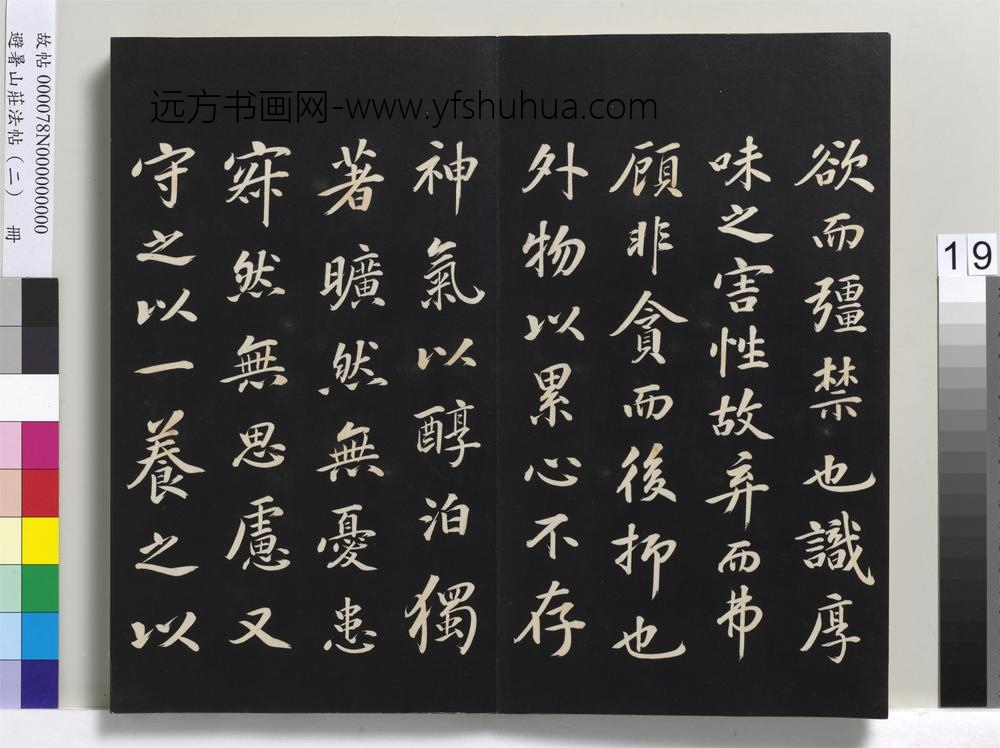 远方书画网-www.yfshuhua.com
欲而彊禁也識厚
味之害性故弃而弗
顧非貪而後抑也
外物以累心不存
神氣以醇泊獨
著曠然無憂患
寂然無思慮又
守之以一養之以
故帖 000078N000000000
避暑山莊法帖(二) 冊
19